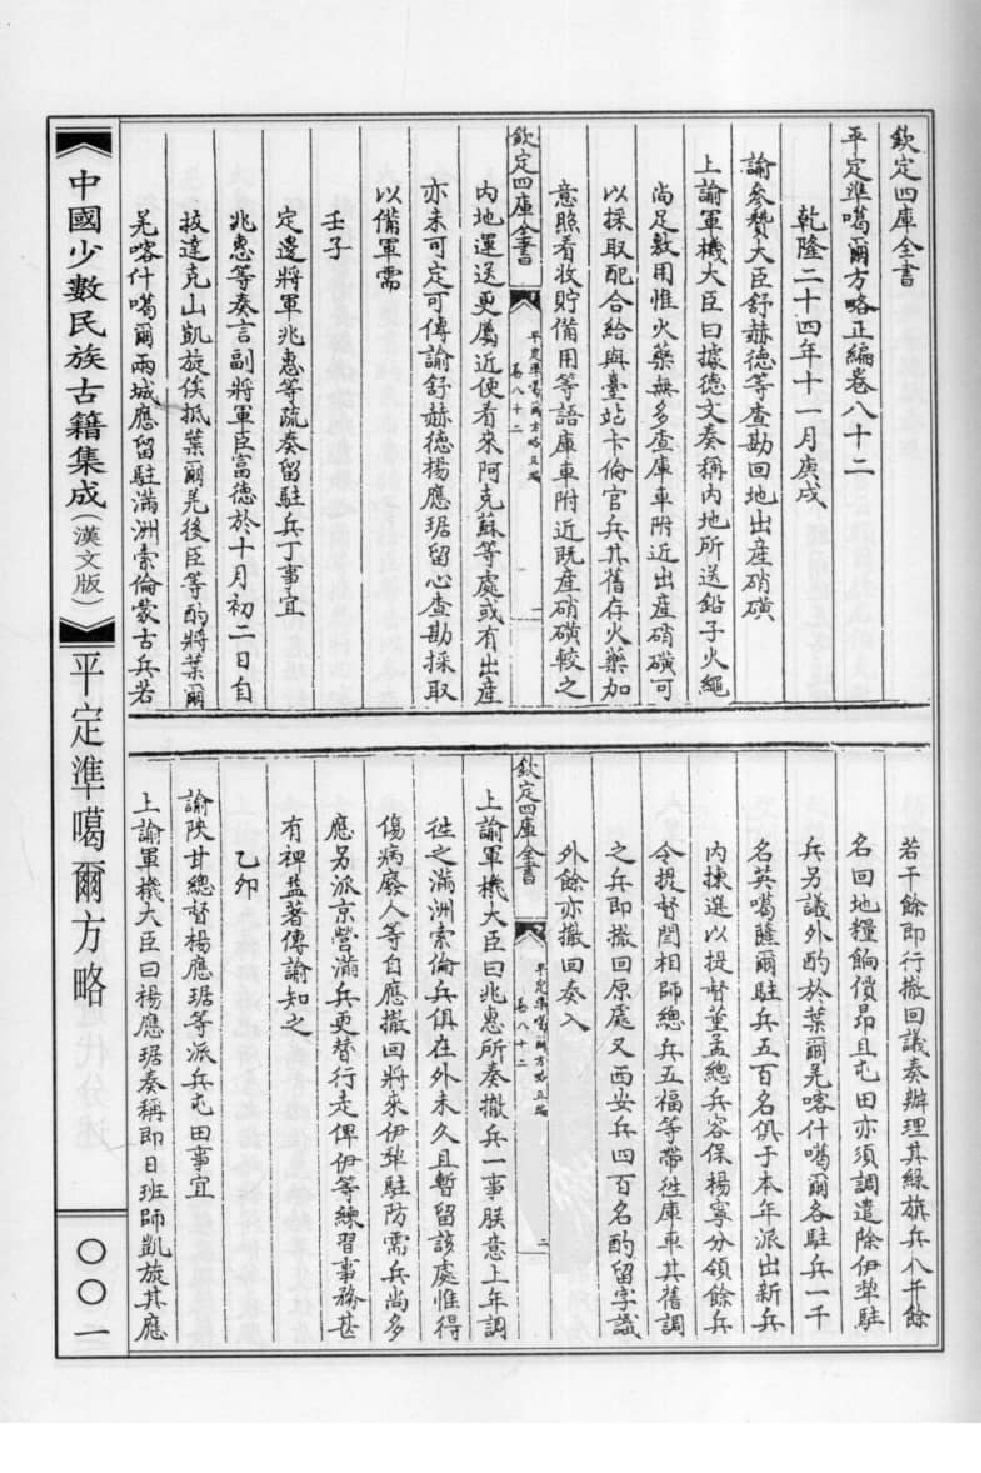 欽定四庫全書
平定準噶爾方略正編卷八十二
乾隆二十四年十一月庚戌
諭參贊大臣舒赫德等查勘回地出產硝磺
上諭軍機大臣曰據德文奏稱內地所送鉛子火繩
尚足敷用惟火藥無多查庫車附近出產硝磺可
以採取配合給與臺站卡倫官兵其舊存火藥加
意照看收貯備用等語庫車附近既產硝磺較之
欽定四庫全書
平定準噶爾方略正編
卷八十二
一
內地運送更屬近便看來阿克蘇等處或有出產
亦未可定可傳諭舒赫德楊應琚留心查勘採取
以備軍需
壬子
定邊將軍兆惠等疏奏留駐兵丁事宜
兆惠等奏言副將軍臣富德於十月初二日自
拔達克山凱旋俟抵葉爾羌後臣等酌將葉爾
羌喀什噶爾兩城應留駐滿洲索倫蒙古兵若
若干餘即行撤回議奏辦理其綠旗兵八千餘
名回地糧餉價昂且屯田亦須調遣除伊犂駐
兵另議外酌於葉爾羌喀什噶爾各駐兵一千
名英噶薩爾駐兵五百名俱于本年派出新兵
內揀選以提督董孟總兵容保楊寧分領餘兵
令提督閆相師總兵五福等帶徃庫車其舊調
之兵即撤回原處又西安兵四百名酌留字識
外餘亦撤回奏入
欽定四庫全書
平定準噶爾方略正編
卷八十二
二
上諭軍機大臣曰兆惠所奏撤兵一事朕意上年調
徃之滿洲索倫兵俱在外未久且暫留該處惟得
傷病廢人等自應撤回將來伊犂駐防需兵尚多
應另派京營滿兵更替行走俾伊等練習事務甚
有裨益著傳諭知之
乙卯
諭陝甘總督楊應琚等派兵屯田事宜
上諭軍機大臣曰楊應琚奏稱即日班師凱旋其應
中國少數民族古籍集成（漢文版）
平定準噶爾方略
〇〇一